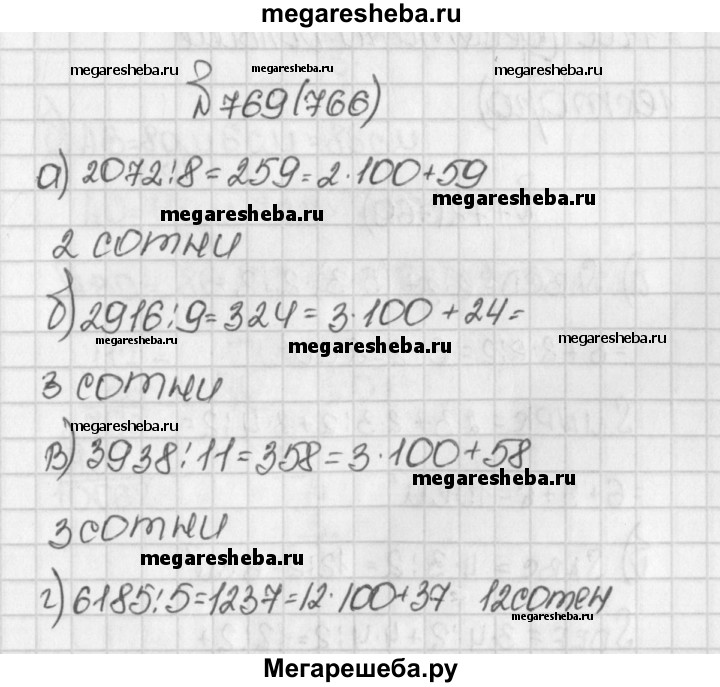 megaresheba.ru
megaresheba.ru megaresheba.ru megaresheba.ru
№769(766)
а) 2072:8=259=2·100+59
megaresheba.ru megaresheba.ru
2 сотни
б) 2916:9=324=3·100+24=
megaresheba.ru megaresheba.ru megaresheba.ru
3 сотни
megaresheba.ru
в) 3938:11=358=3·100+58
megaresheba.ru
3 сотни
megaresheba.ru
г) 6185:5=1237=12·100+37 12сотен
megaresheba.ru megaresheba.ru
Мегарешеба.ру